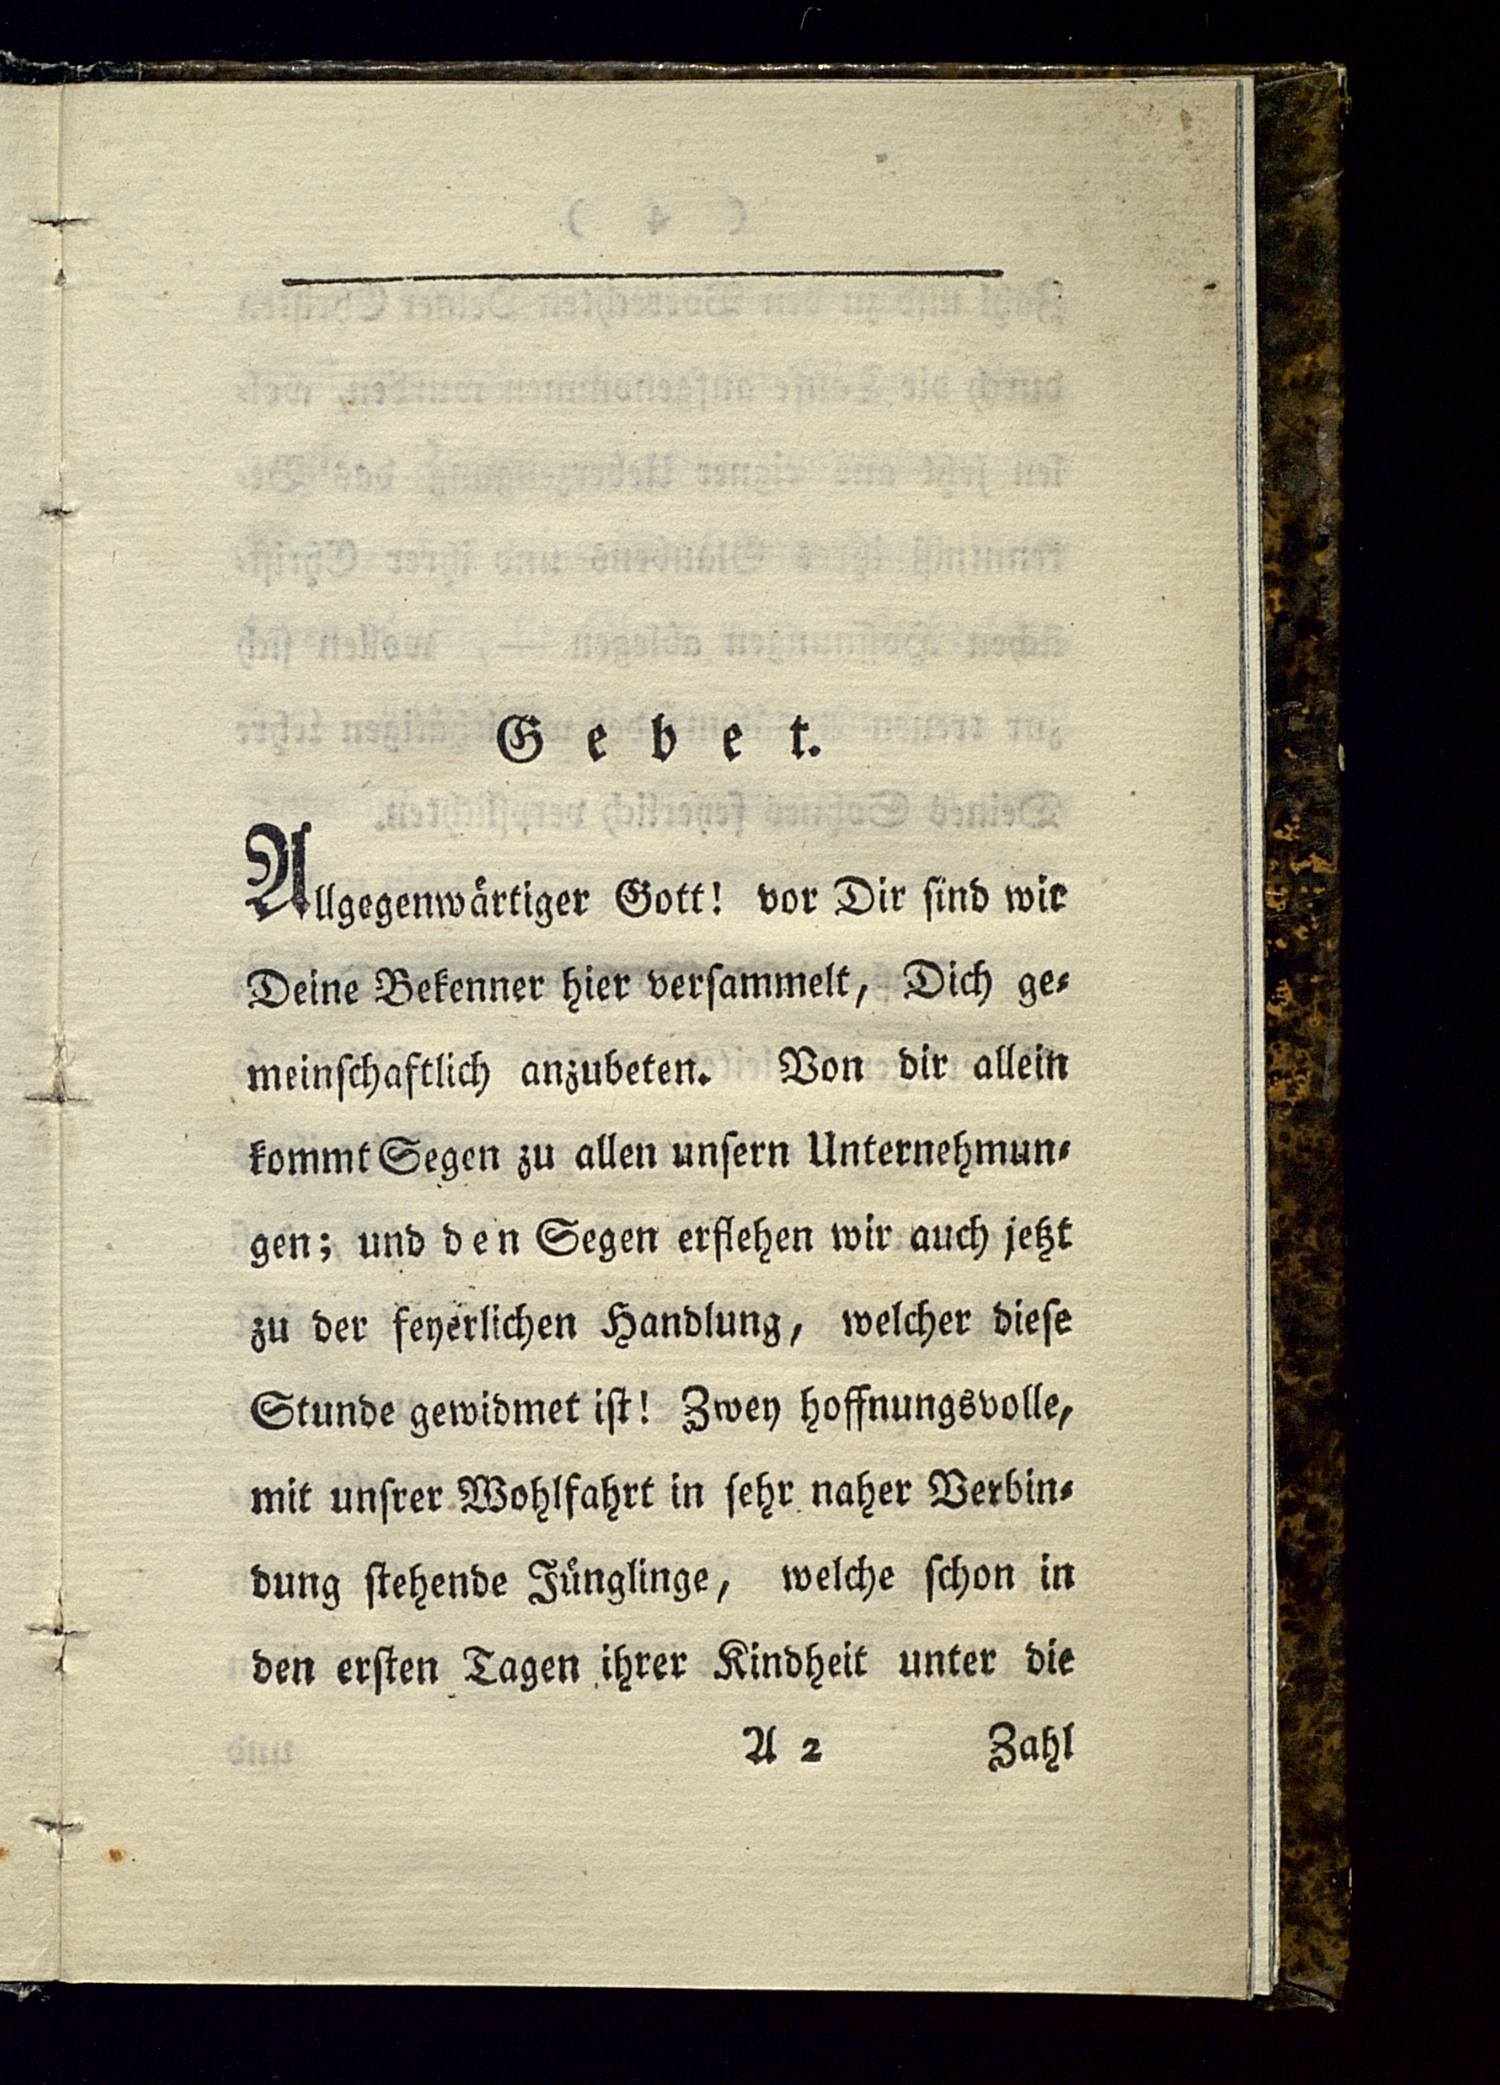 Gebet.
Allgegenwärtiger Gott! vor Dir ſind wir
Deine Bekenner hier verſammelt, Dich ge-
meinſchaftlich anzubeten. Von dir allein
kommt Segen zu allen unſern Unternehmun-
gen; und den Segen erflehen wir auch jetzt
zu der feyerlichen Handlung, welcher dieſe
Stunde gewidmet iſt! Zwey hoffnungsvolle,
mit unſrer Wohlfahrt in ſehr naher Verbin-
dung ſtehende Jünglinge, welche ſchon in
den erſten Tagen ihrer Kindheit unter die
A 2 Zahl